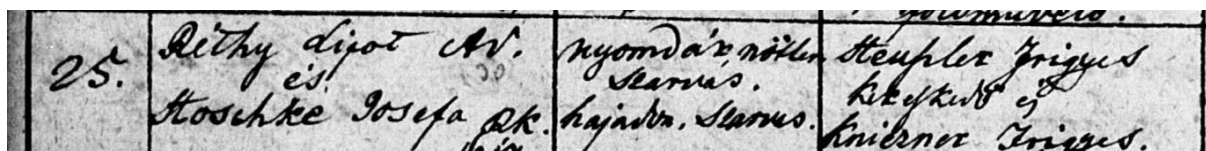 földművelő.
25.
Réthy Lipót ÁV.
és
Stoschke Josefa RK.
nyomdász nőtlen
Szarvas.
hajadon. Szarvas.
Steupler Frigyes
kereskedő és
Knierner Frigyes.